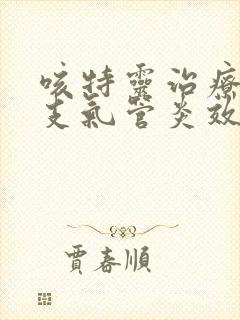 咳特靈治療
支氣管炎效
賈春順